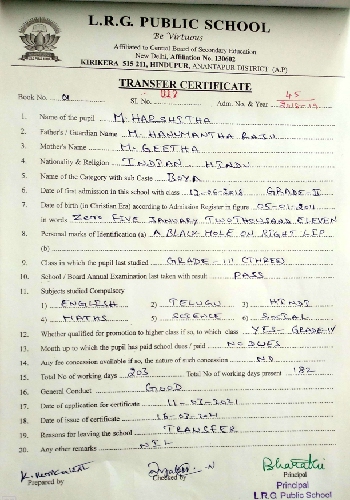 L.R.G. PUBLIC SCHOOL
Be Virtuous
Affiliated to Central Board of Secondary Education
New Delhi, Affiliation No. 130602
KIRIKERA 515 211, HINDUPUR, ANANTAPUR DISTRICT (A.P)
TRANSFER CERTIFICATE
Book No. 01 Sl. No. 017 Adm. No. & Year 45
1. Name of the pupil M. HARSHITHA
2. Father's / Guardian Name M. HANUMANTHA RAJU
3. Mother's Name M. GEETHA
4. Nationality & Religion INDIAN HINDU
5. Name of the Category with sub Caste BOYA
6. Date of first admission in this school with class 12-06-2018 GRADE-I
7. Date of birth (in Christian Era) according to Admission Register in figure 05-01-2011
in words ZERO FIVE JANUARY TWO THOUSAND ELEVEN
8. Personal marks of Identification (a) A BLACK MOLE ON RIGHT LEP
(b)
9. Class in which the pupil last studied GRADE-III (THREE)
10. School / Board Annual Examination last taken with result PASS
11. Subjects studied Compulsory
1) ENGLISH 2) TELUGU 3) HINDI
4) MATHS 5) SCIENCE 6) SOCIAL
12. Whether qualified for promotion to higher class if so, to which class YES-GRADE-IV
13. Month up to which the pupil has paid school dues / paid NO DUES
14. Any fee concession available if so, the nature of such concession NO
15. Total No of Working days 203 Total No of working days present 182
16. General Conduct GOOD
17. Date of application for certificate 11-03-2021
18. Date of issue of certificate 16-03-2021
19. Reasons for leaving the school TRANSFER
20. Any other remarks NIL
Bharathi
Prepared by Checked by Principal
Principal
L.R.G. Public School